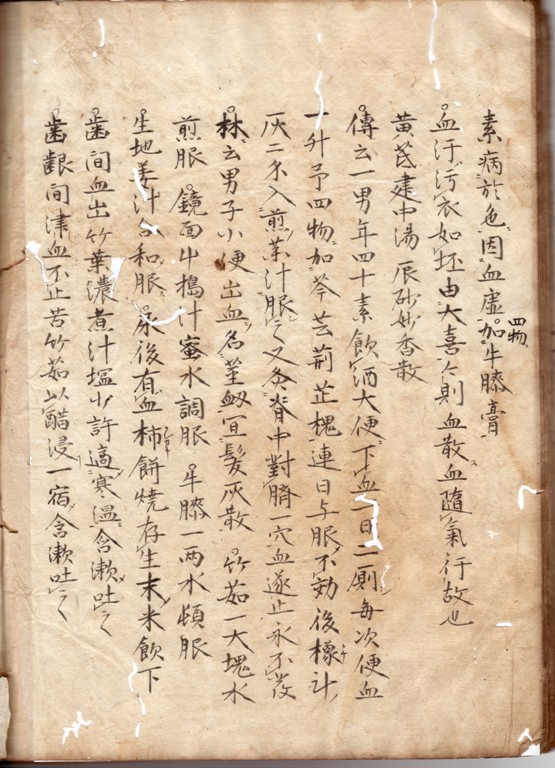 素病於色因血虚四物加牛膝膏
血汗汚衣如坯由大喜今則血散血隨氣行故也
黄芪建中湯 辰砂妙香散
傳云一男年四十素飲酒大便下血一日二厠毎次便血
一升予四物加芩芸荆芷槐連日与服不効後橡
灰二不入煎薬汁服之又灸脊中對臍一穴血遂止永不發
林云男子小便出血名宜髪灰散 竹茹一大塊水
煎服 鏡面搗汁蜜水調服 牛膝一両水煩服
生地姜汁和服 尿後有血柿餅焼存生末米飲下
歯間血出竹葉濃煮汁塩少許適寒温含漱吐之
歯齦間津血不止苦竹茹以醋浸一宿含漱吐之